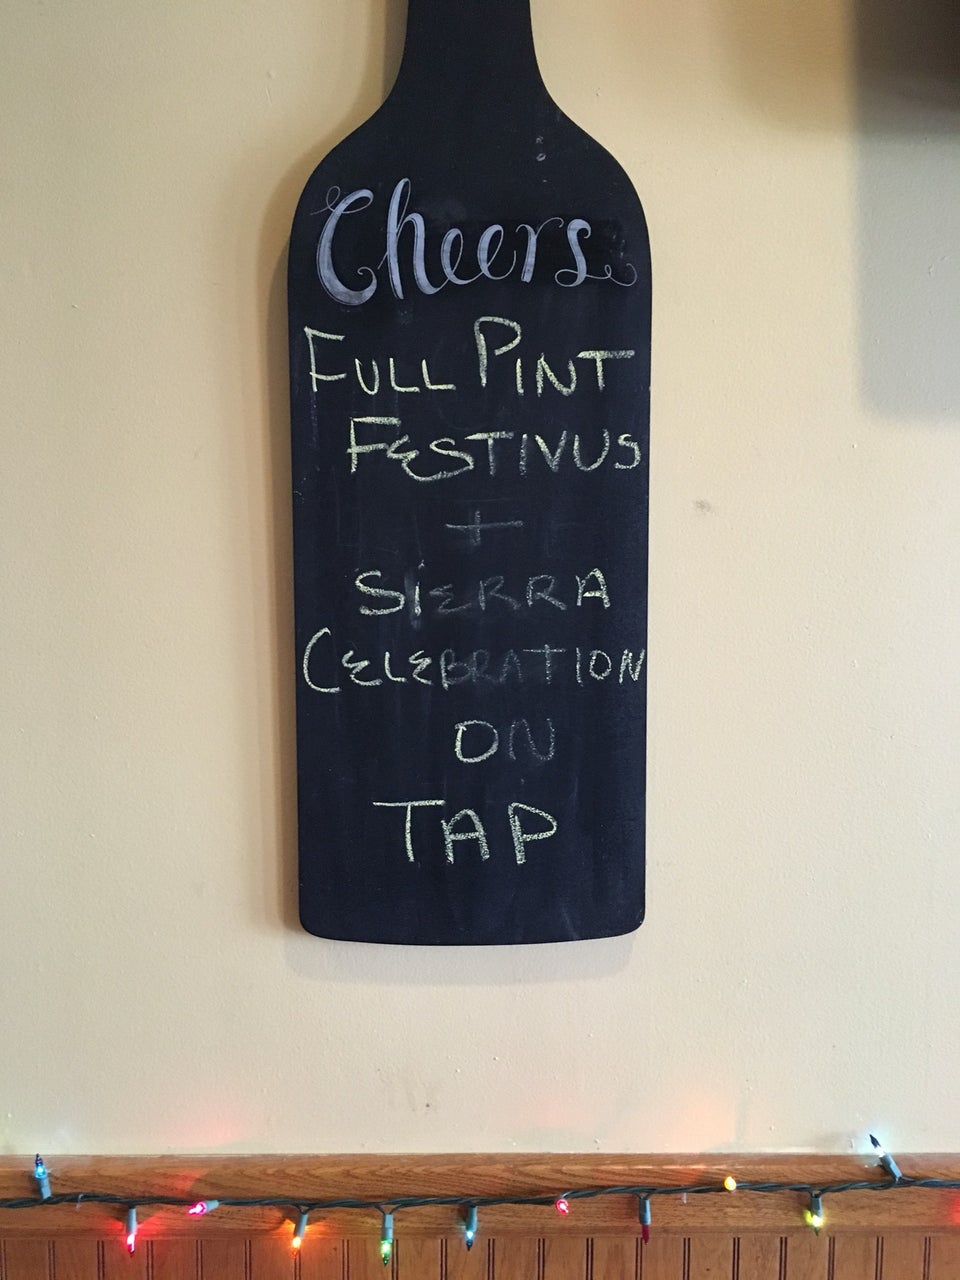 Cheers
FULL PINT
FESTIVUS
+
SIERRA
CELEBRATION
ON
TAP